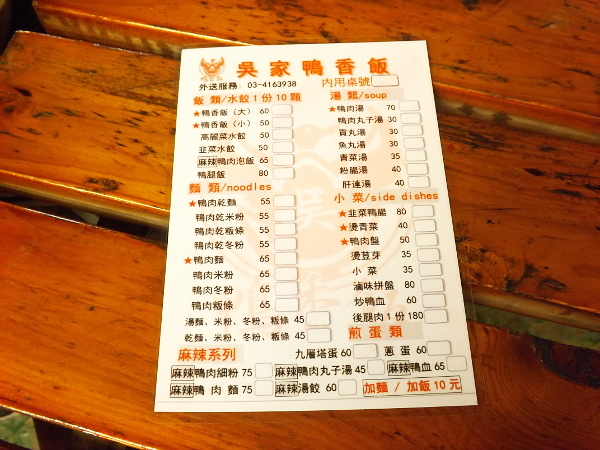 吳家鴨香飯
外送服務: 03-4163938 內用桌號
飯 類/水餃1份10顆
★鴨香飯（大） 60
★鴨香飯（小） 50
高麗菜水餃 50
韭菜水餃 50
麻辣鴨肉泡飯 65
鴨腿飯 80
麵 類/noodles
★鴨肉乾麵 55
鴨肉乾米粉 55
鴨肉乾粄條 55
鴨肉乾冬粉 55
★鴨肉麵 65
鴨肉米粉 65
鴨肉冬粉 65
鴨肉粄條 65
湯麵、米粉、冬粉、粄條 45
乾麵、米粉、冬粉、粄條 45
湯 類/soup
★鴨肉湯 70
鴨肉丸子湯 30
貢丸湯 30
魚丸湯 30
青菜湯 35
粉腸湯 40
肝連湯 40
小 菜/side dishes
★韭菜鴨腸 80
★燙青菜 40
★鴨肉盤 50
燙荳芽 35
小 菜 35
滷味拼盤 80
炒鴨血 60
後腿肉1份 180
煎蛋類
九層塔蛋 60 蔥 蛋 60
麻辣系列
麻辣鴨肉細粉 75 麻辣鴨肉丸子湯 45 麻辣鴨血 65
麻辣鴨 肉 麵 75 麻辣湯餃 60 加麵 / 加飯 10 元